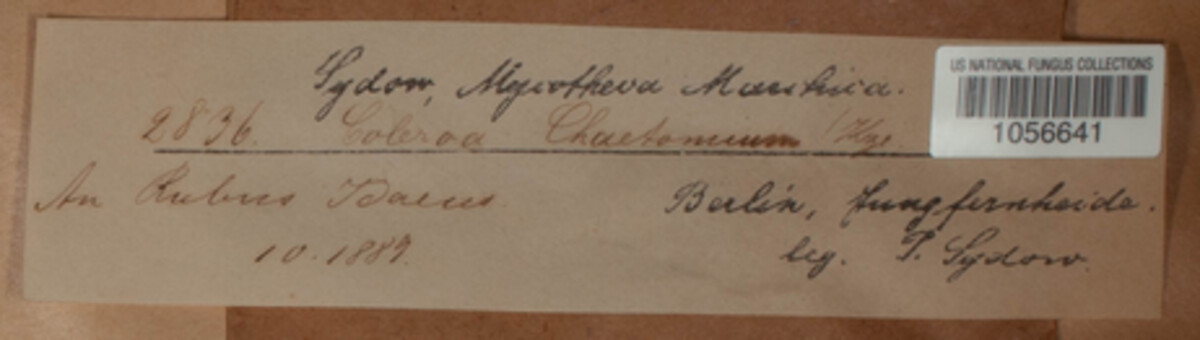 Sydow, Mycotheca Marchica.
US NATIONAL FUNGUS COLLECTIONS
1056641
2836. Coleroa Chaetomium
An Rubus Idaeus
Berlin, Jungfernheide.
10.1889.
leg. P. Sydow.